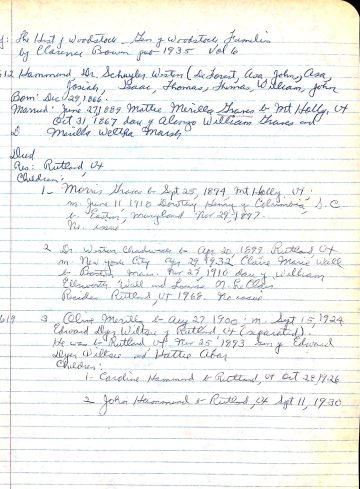 The Hist of Woodstock Gen of Woodstock Families
by Clarence Bowen pub 1935 Vol 6
612 Hammond Dr. Schuyler Weston (DeForest, Asa, John, Asa,
Josiah, Isaac, Thomas, Thomas, William, John
Born: Dec 29, 1866.
Married: June 27, 1889 Mattie Merilla Graves b Mt Holly, Vt
Oct 31, 1867 dau of Alonzo William Graves and
D Merilla Marsh
Died
Res: Rutland, Vt
Children:
1- Morris Graves b Sept 25, 1894 Mt Holly, Vt:
m. June 11, 1918 Dorothy Henry of Columbia, S.C
b. Easton, Maryland Nov 29, 1897.
No. issue
2. Dr. Weston Chadwick b Apr 20, 1899 Rutland Vt
m. New York City Apr 29, 1932 Claire Marie Wall
b Boston, Mass. Nov 27, 1910 dau of William
Ellsworth Wall and Louise
Resides Rutland, Vt 1968. No issue
619 3. Olive Merilla b Aug 27, 1900: m. Sept 15, 1924
Edward Dyer Wiltsie of Rutland Vt (separated).
He was b. Rutland Vt Nov 25, 1893 son of Edward
Dyer Wiltsie and Hattie
Children:
1- Caroline Hammond b Rutland, Vt Oct 28, 1926
2 John Hammond b Rutland, Vt Sept 11, 1930